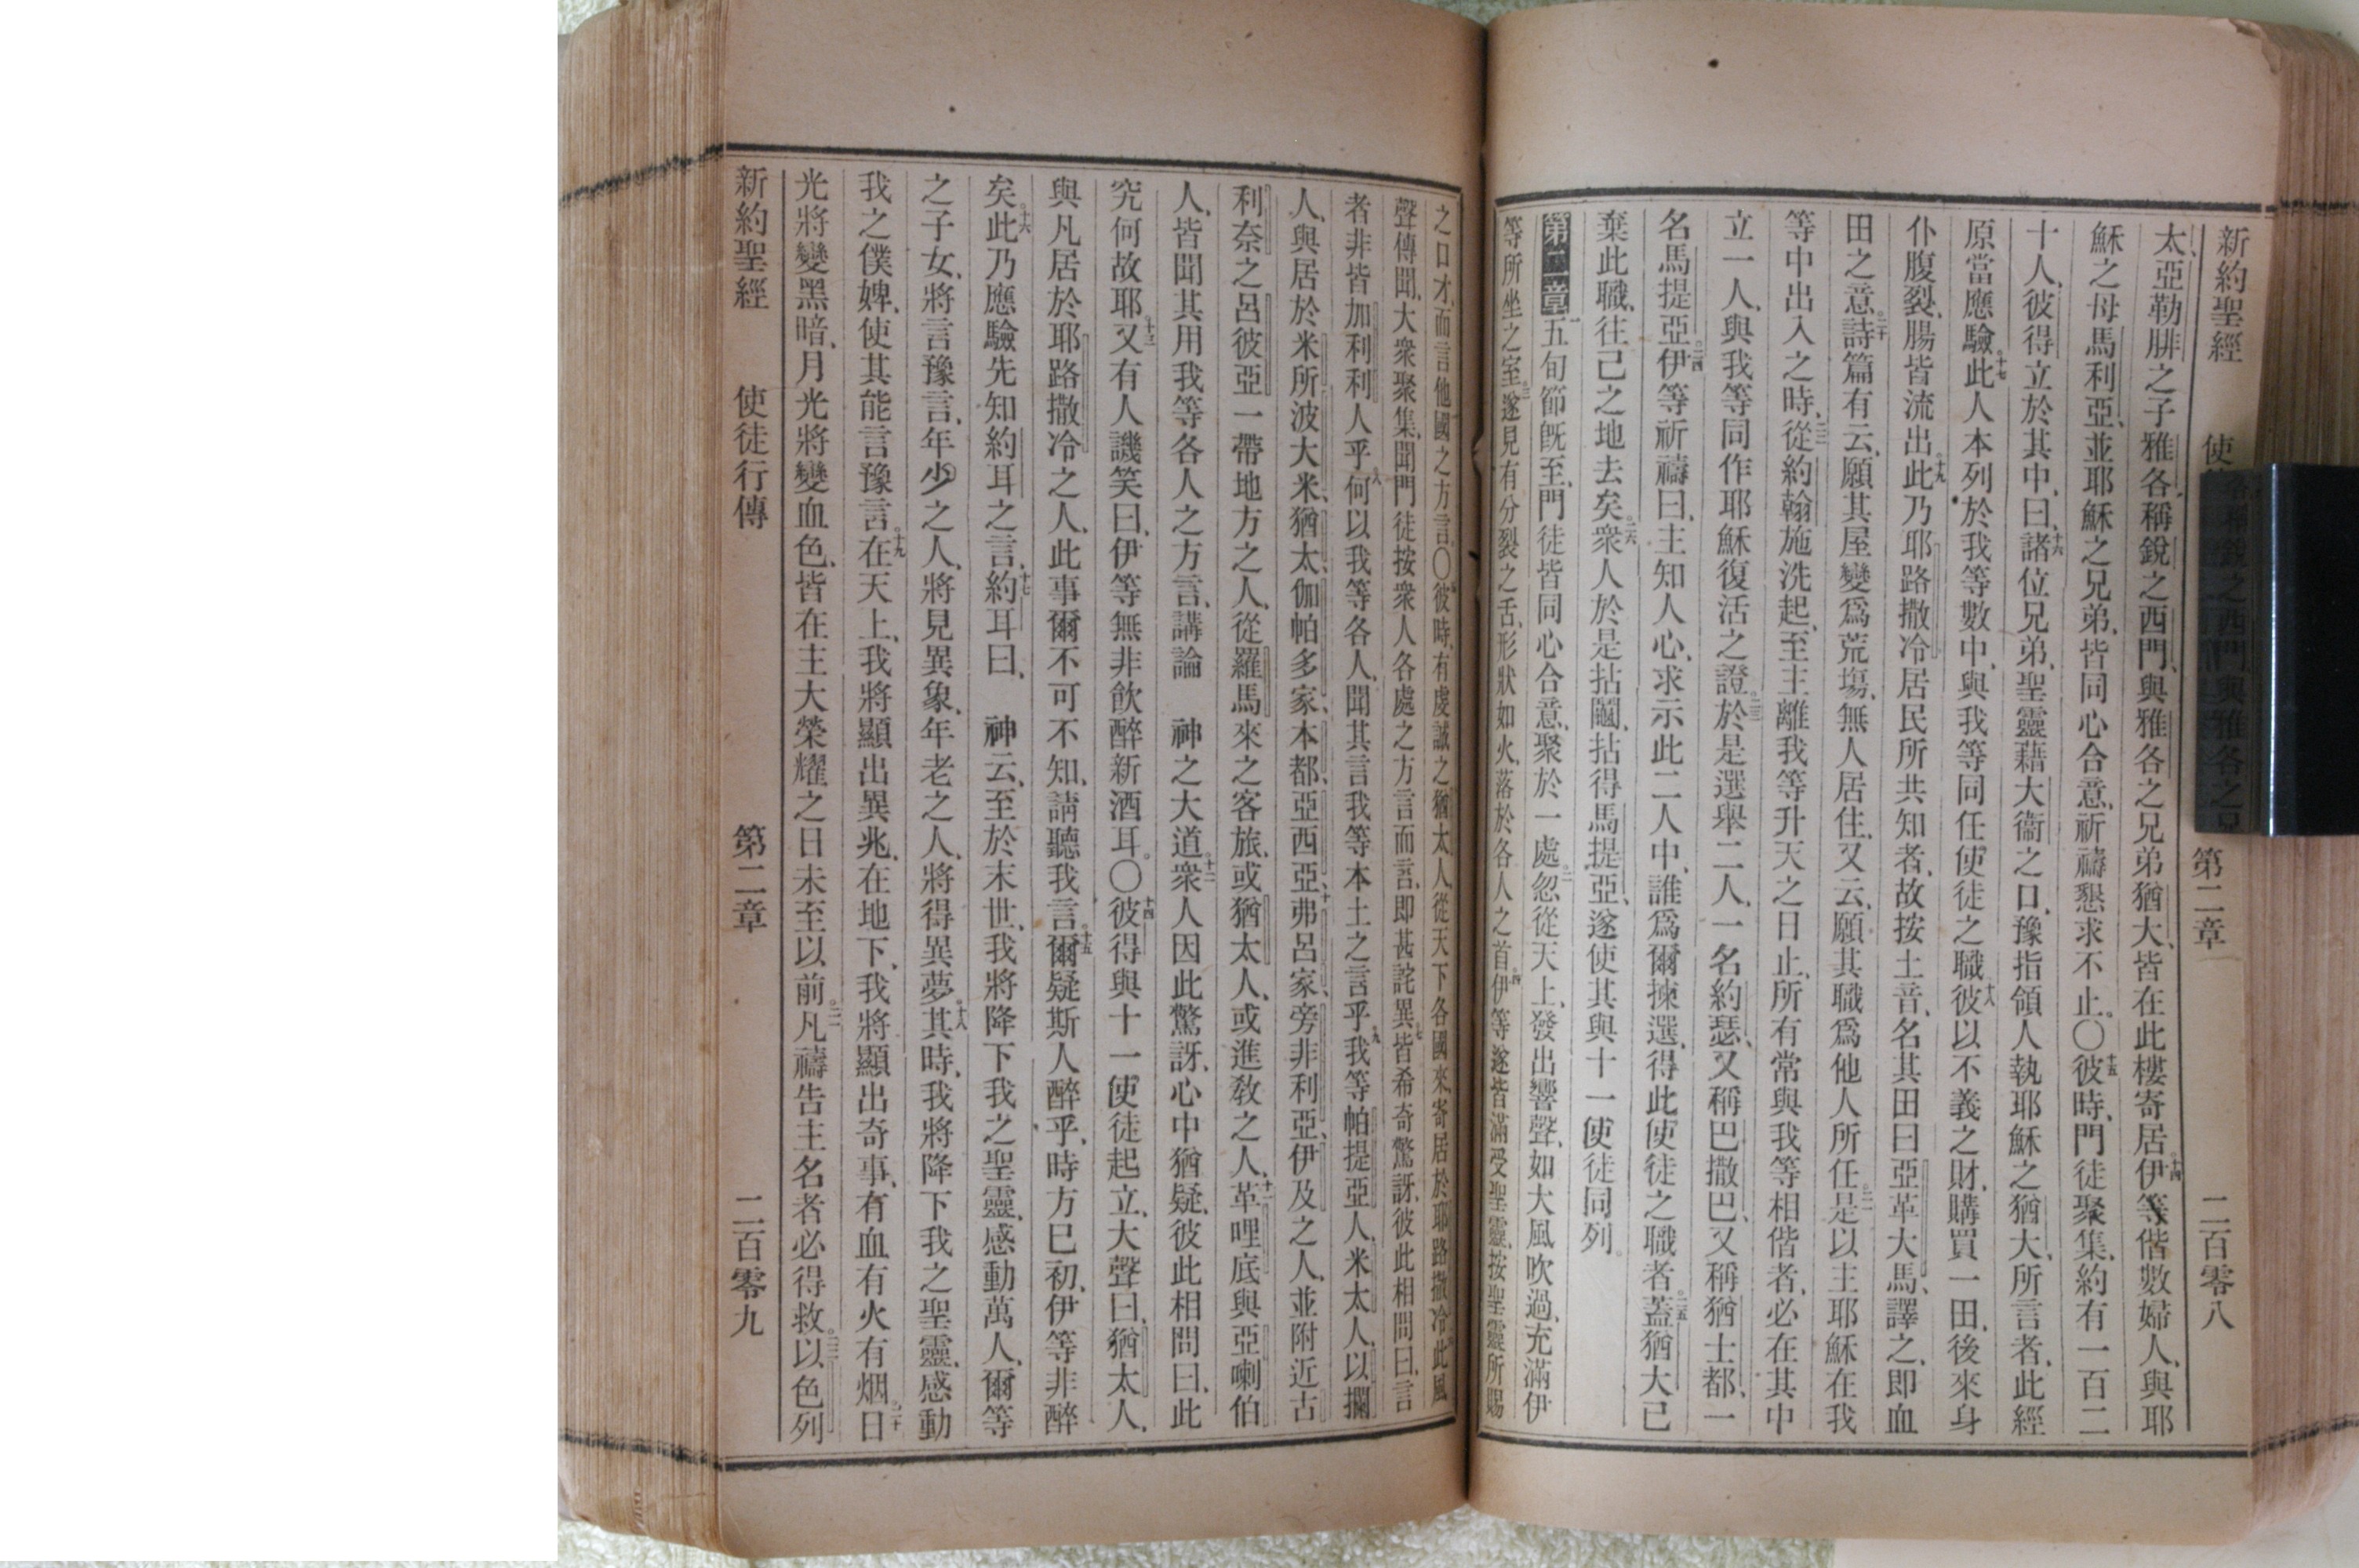 新約聖經 第二章 二百零八
太、亞勒腓之子雅各、稱銳之西門、與雅各之兄弟猶大、皆在此樓寄居。十四伊等偕數婦人、與耶
穌之母馬利亞、並耶穌之兄弟、皆同心合意、祈禱懇求不止。〇十五彼時、門徒聚集、約有一百二
十人、彼得立於其中、曰、十六諸位兄弟、聖靈藉大衞之口、豫指領人執耶穌之猶大、所言者、此經
原當應驗。十七此人本列於我等數中、與我等同任使徒之職。十八彼以不義之財、購買一田、後來身
仆腹裂、腸皆流出。十九此乃耶路撒冷居民所共知者、故按土音、名其田曰亞革大馬、譯之、卽血
田之意。二十詩篇有云、願其屋變爲荒塲、無人居住、又云、願其職爲他人所任。二一是以主耶穌在我
等中出入之時、二二從約翰施洗起、至主離我等升天之日止、所有常與我等相偕者、必在其中
立一人、與我等同作耶穌復活之證。二三於是選舉二人、一名約瑟、又稱巴撒巴、又稱猶士都、一
名馬提亞。二四伊等祈禱曰、主知人心、求示此二人中、誰爲爾揀選、得此使徒之職者。二五蓋猶大已
棄此職、往己之地去矣。二六衆人於是拈鬮、拈得馬提亞、遂使其與十一使徒同列。
第二章 一五旬節旣至、門徒皆同心合意、聚於一處。二忽從天上、發出響聲、如大風吹過、充滿伊
等所坐之室。三遂見有分裂之舌、形狀如火、落於各人之首。四伊等遂皆滿受聖靈、按聖靈所賜
之口才、而言他國之方言。〇五彼時、有虔誠之猶太人、從天下各國來、寄居於耶路撒冷。六此風
聲傳聞、大衆聚集、聞門徒按衆人各處之方言而言、卽甚詫異。七皆希奇驚訝、彼此相問曰、言
者非皆加利利人乎。八何以我等各人、聞其言我等本土之言乎。九我等帕提亞人、米太人、以攔
人、與居於米所波大米、猶太、伽帕多家、本都、亞西亞、十弗呂家、旁非利亞、伊及之人、並附近古
利奈之呂彼亞一帶地方之人、從羅馬來之客旅、或猶太人、或進敎之人、十一革哩底與亞喇伯
人、皆聞其用我等各人之方言、講論 神之大道。十二衆人因此驚訝、心中猶疑、彼此相問曰、此
究何故耶。十三又有人譏笑曰、伊等無非飮醉新酒耳。〇十四彼得與十一使徒起立、大聲曰、猶太人、
與凡居於耶路撒冷之人、此事爾不可不知、請聽我言。十五爾疑斯人醉乎、時方巳初、伊等非醉
矣。十六此乃應驗先知約耳之言、十七約耳曰、 神云、至於末世、我將降下我之聖靈、感動萬人、爾等
之子女、將言豫言、年少之人、將見異象、年老之人、將得異夢。十八其時、我將降下我之聖靈、感動
我之僕婢、使其能言豫言。十九在天上、我將顯出異兆、在地下、我將顯出奇事、有血有火有烟。二十日
光將變黑暗、月光將變血色、皆在主大榮耀之日未至以前。二一凡禱告主名者必得救。二二以色列
新約聖經 使徒行傳 第二章 二百零九